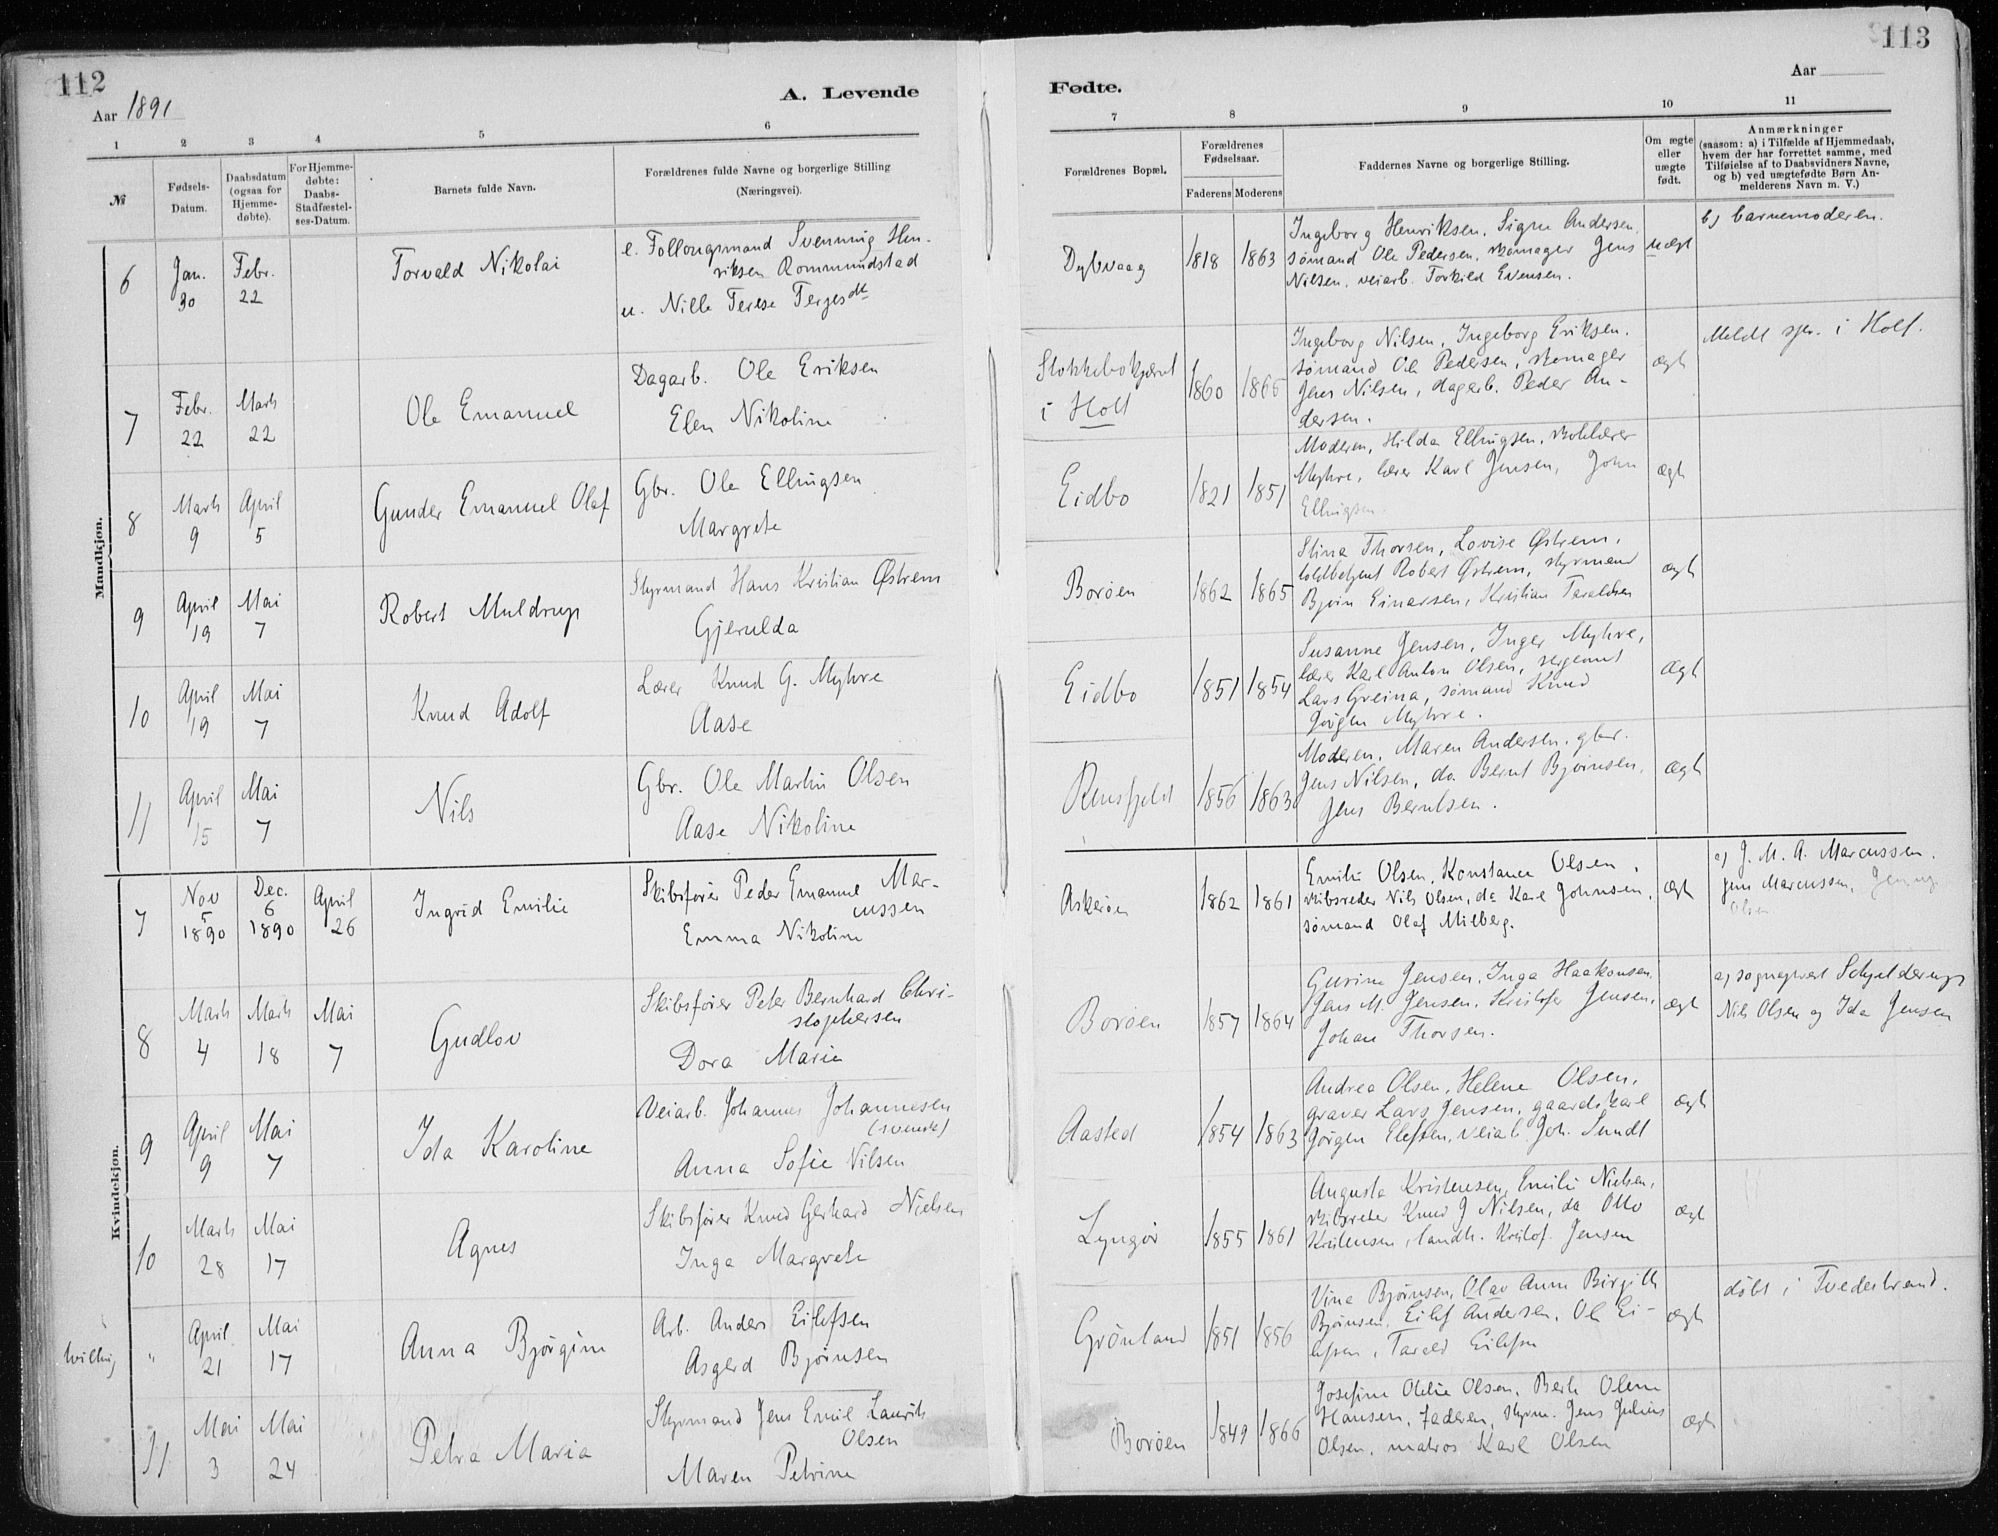 112
Aar 1891
A. Levende
1 2 3 4 5 6
№
Fødsels-
Datum.
Daabsdatum
(ogsaa for
Hjemme-
døbte).
For Hjemme-
døbte:
Daabs-
Stadfæstel-
ses-Datum.
Barnets fulde Navn.
Forældrenes fulde Navne og borgerlige Stilling
(Næringsvei).
Mandkjøn.
6 Jan. 30 Febr. 22 Torvald Nikolai
e. Follougsmand Svenning Hen-
riksen Rommundstad
u. Nille Terese Terjesdt
7 Febr. 22 Marts 22 Ole Emanuel
Dagarb. Ole Eriksen
Elen Nikoline
8 Marts 9 April 5 Gunder Emanuel Olaf
Gbr. Ole Ellingsen
Margrete
9 April 19 Mai 7 Robert Muldrup
Styrmand Hans Kristian Østrem
Gjerulda
10 April 19 Mai 7 Knud Adolf
Lærer Knud G. Myhre
Aase
11 April 15 Mai 7 Nils
Gbr. Ole Martin Olsen
Aase Nikoline
Kvindekjøn.
7 Nov 5 1890 Dec. 6 1890 April 26 Ingrid Emilie
Skibsfører Peder Emanuel Mar-
cussen
Emma Nikoline
8 Marts 4 Marts 18 Mai 7 Gudlov
Skibsfører Peter Bernhard Chri-
stophersen
Dora Marie
9 April 9 Mai 7 Ida Karoline
Veiarb. Johannes Johannesen
(svensk)
Anna Sofie Nilsen
10 Marts 28 Mai 17 Agnes
Skibsfører Knud Gerhard Nielsen
Inga Margrete
tvilling " April 21 Mai 17 Anna Bjørgine
Arb. Anders Eilefsen
Asgerd Bjørnsen
11 Mai 3 Mai 24 Petra Maria
Styrmand Jens Emil Laurits
Olsen
Maren Petrine
113
Aar
Fødte.
7 8 9 10 11
Forældrenes Bopæl.
Forældrenes
Fødselsaar.
Faderens Moderens
Faddernes Navne og borgerlige Stilling.
Om ægte
eller
uægte
født.
Anmærkninger
(saasom: a) i Tilfælde af Hjemmedaab,
hvem der har forrettet samme, med
Tilføielse af to Daabsvidners Navne,
og b) ved uægtefødte Børn An-
melderens Navn m. V.)
Dybvaag 1818 1863
Ingeborg Henriksen, Signe Andersen,
sømand Ole Pedersen, skomager Jens
Nilsen, veiarb. Torkild Evensen.
uægt
b) barnemoderen.
Stokkebokjærret
i Holt
1860 1865
Ingeborg Nilsen, Ingeborg Eriksen.
sømand Ole Pedersen, skomager
Jens Nilsen, dagarb. Peder An-
dersen.
ægt
Meldt spr. i Holt.
Eidbo 1821 1851
Moderen, Hilda Ellingsen, skolelærer
Myhre, lærer Karl Jensen, John
Ellingsen.
ægt
Borøen 1862 1865
Stina Thorsen, Lovise Østrem,
toldbetjent Robert Østrem, styrmand
Bjørn Einarsen, Kristian Taraldsen
ægt
Eidbo 1851 1854
Susanne Jensen, Inger Myhre,
lærer Karl Anton Olsen, sergeant
Lars Greina, sømand Knud
Jørgen Myhre.
ægt
Rensfjeldt 1856 1863
Moderen, Maren Andersen, gbr.
Jens Nilsen, do Bernt Bjørnsen,
Jens Berntsen.
ægt
Askerøen 1862 1861
Emilie Olsen, Konstance Olsen,
skibsreder Nils Olsen, do Karl Johnsen,
sømand Olaf Milberg.
ægt
a) J. M. A. Marcussen.
Jens Marcussen, Jenny
Olsen.
Borøen 1857 1864
Gurine Jensen, Inga Haakonsen,
Jens M. Jensen, Kristofer Jensen,
Johan Thorsen.
ægt
a) sogneprest Schjelderup
Nils Olsen og Ida Jensen
Aasted 1854 1863
Andrea Olsen, Helene Olsen,
graver Lars Jensen, gaardskarl
Jørgen Elefsen, veiarb. Joh. Sundt
ægt
Lyngør 1855 1861
Augusta Kristensen, Emilie Nielsen,
skibsreder Knud G Nilsen, do Otto
Kristensen, landh. Kristof. Jensen
ægt
Grønland 1851 1856
Vina Bjørnsen, Olav Anne Birgith
Bjørnsen, Eilef Andersen, Ole Ei-
lefsen, Tarald Eilefsen
ægt
døbt i Tvedestrand.
Borøen 1849 1866
Josefine Otelie Olsen, Berte Olene
Hansen, Faderen, styrm. Jens Julius
Olsen, matros Karl Olsen
ægt